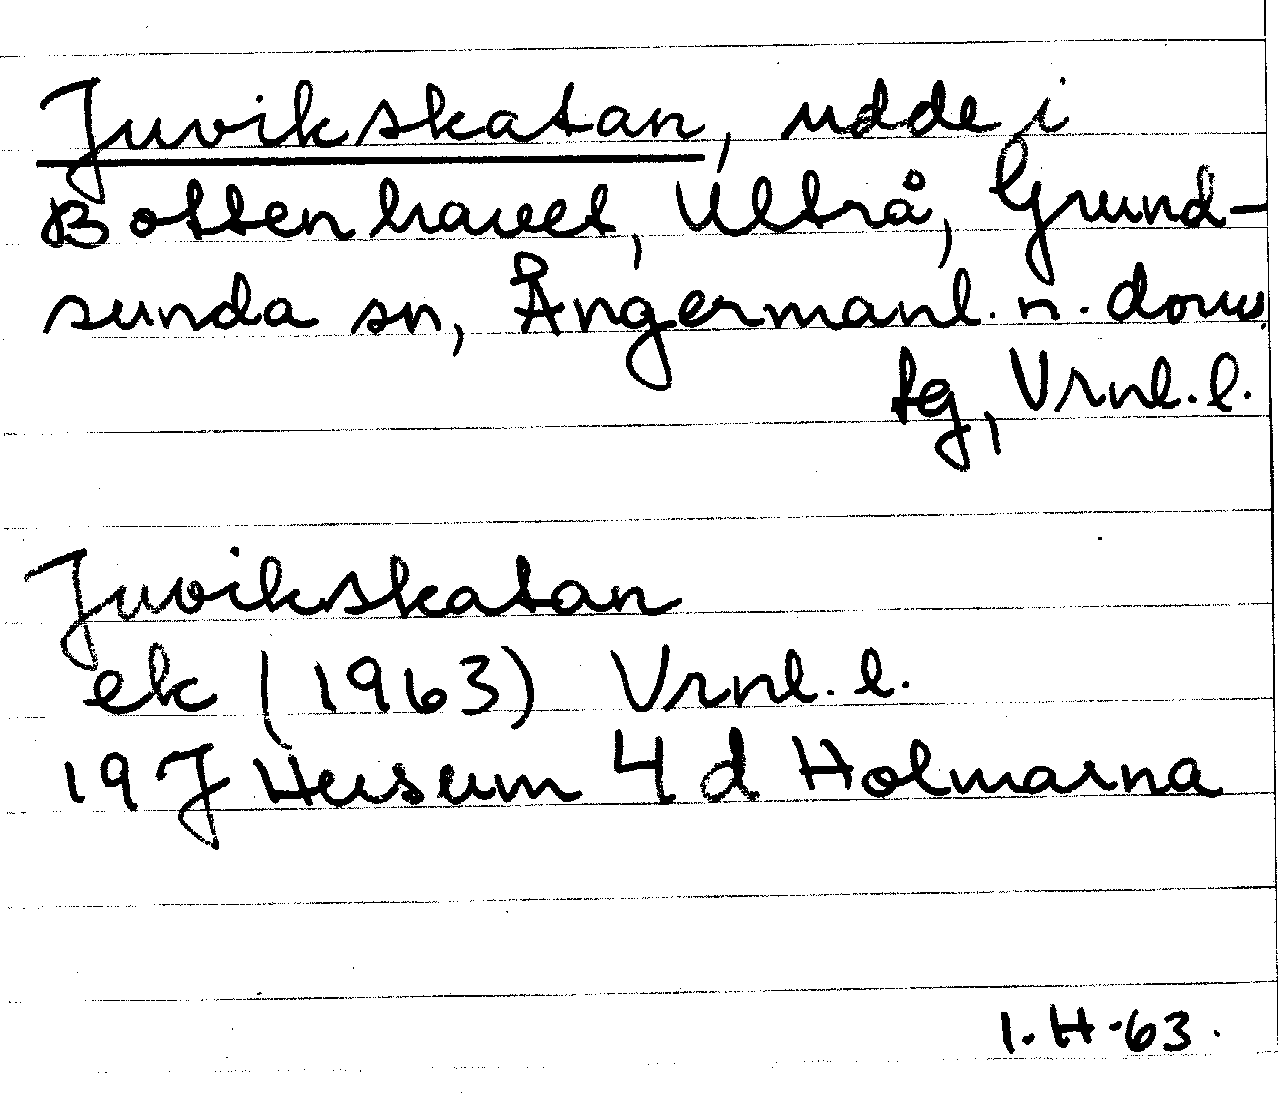 Juvikskatan, udde i
Bottenhavet, Ultrå, Grund-
sunda sn, Ångermanl. n. doms.
tg, Vrnl. l.
Juvikskatan
ek (1963) Vrnl. l.
19 J Husum 4 d Holmarna
I. H-63.